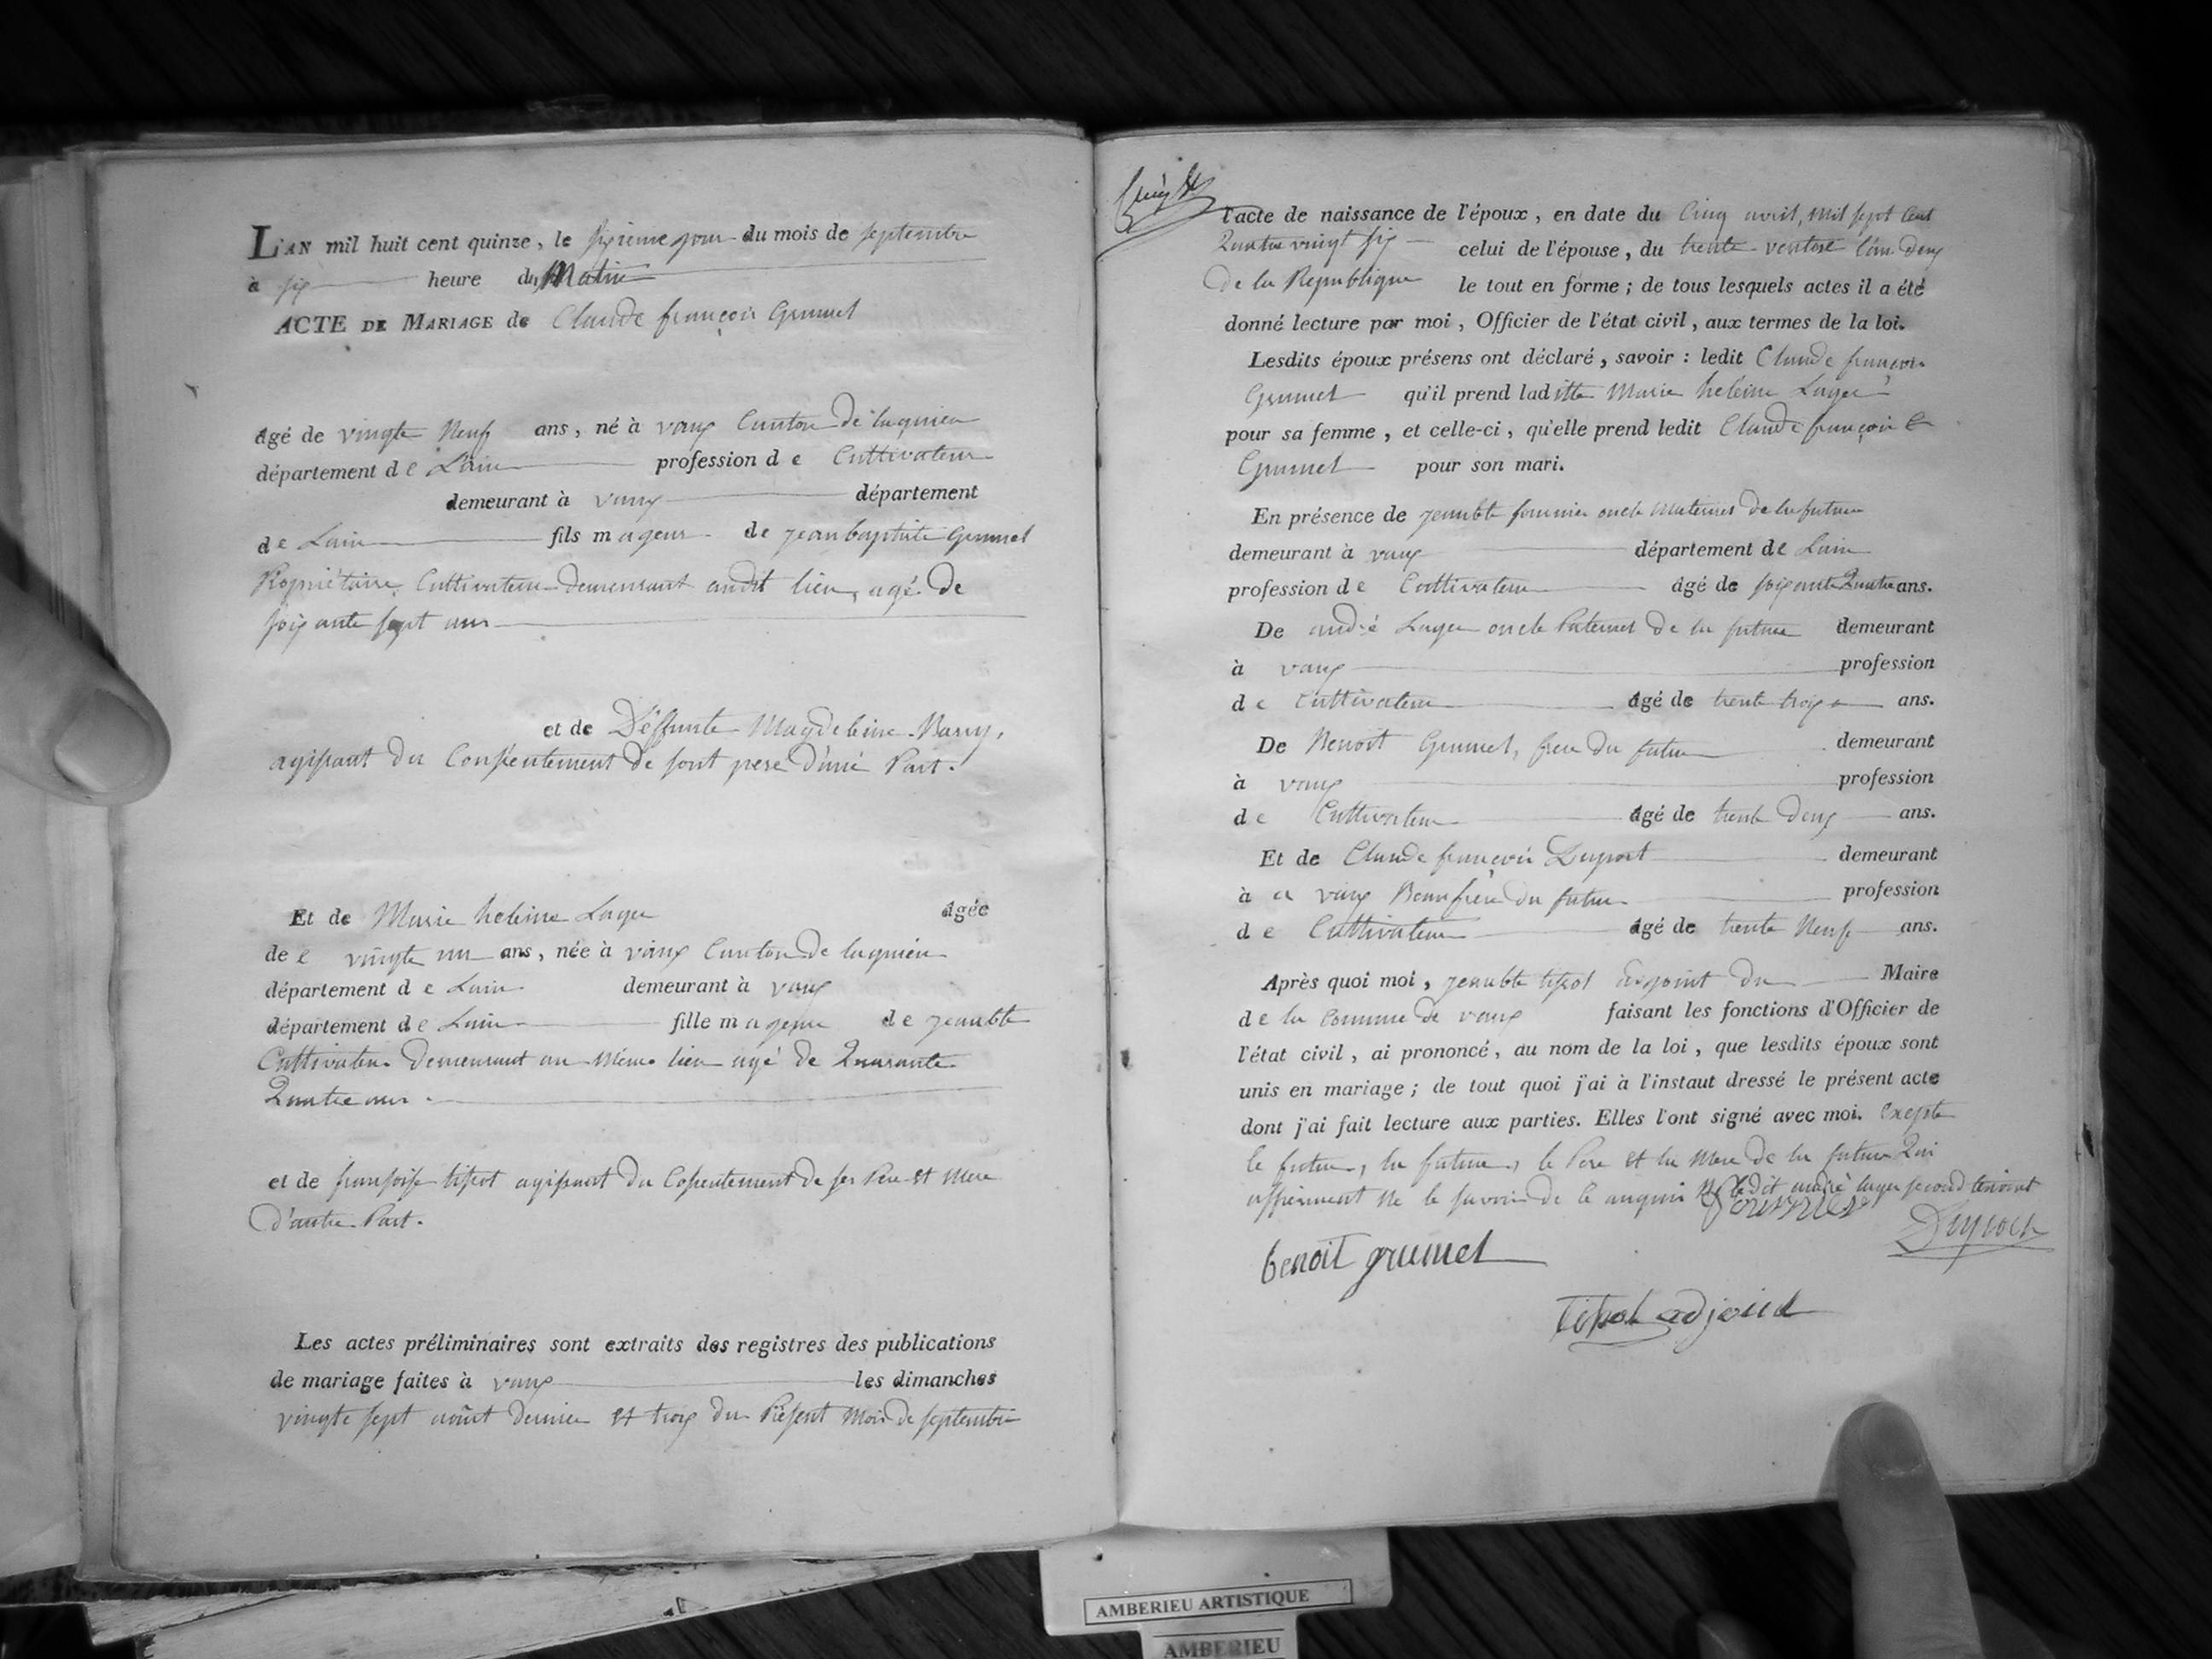 L'AN mil huit cent quinze, le sixieme jour du mois de septembre
à six heure du Matin
ACTE DE MARIAGE de Claude françois Grumet
âgé de vingte Neuf ans, né à vaux Canton de laguieu
département de Lain profession de Cultivateur
demeurant à vaux département
de Lain fils mageur de jean baptiste Grumet
Propriétaire Cultivateur demeurant audit lieu, agé de
soixante sept ans
et de Déffunte Magdeleine Barry,
agissant du Consentement de sont pere d'une Part.
Et de Marie heleine Layer âgée
de e vingte un ans, née à vaux Canton de laguieu
département de Lain demeurant à vaux
département de Lain fille mageure de jean bte
Cultivateur demeurant au même lieu agé de Quarante
Quatre ans.
et de françoise tissot agissant du Consentement de ses Pere et Mere
d'autre Part.
Les actes préliminaires sont extraits des registres des publications
de mariage faites à vaux les dimanches
vingte sept août dernier et trois du Présent Mois de septembre
l'acte de naissance de l'époux, en date du Cinq avril, mil sept Cent
Quatre vingt six celui de l'épouse, du trente ventose l'an deux
de la Republique le tout en forme ; de tous lesquels actes il a été
donné lecture par moi, Officier de l'état civil, aux termes de la loi.
Lesdits époux présens ont déclaré, savoir : ledit Claude françois
Grumet qu'il prend laditte Marie heleine Layer
pour sa femme, et celle-ci, qu'elle prend ledit Claude françois
Grumet pour son mari.
En présence de jean bte fournier oncle Maternel de la future
demeurant à vaux département de Lain
profession de Cultivateur âgé de soixante Quatre ans.
De andré Layer oncle Paternel de la future demeurant
à vaux profession
de Cultivateur âgé de trente trois ans.
De Benoit Grumet, frere du futur demeurant
à vaux profession
de Cultivateur âgé de trente deux ans.
Et de Claude françois Duport demeurant
à a vaux Beaufrère du futur profession
de Cultivateur âgé de trente Neuf ans.
Après quoi moi, jean bte tissot adjoint du Maire
de la Commune de vaux faisant les fonctions d'Officier de
l'état civil, ai prononcé, au nom de la loi, que lesdits époux sont
unis en mariage ; de tout quoi j'ai à l'instaut dressé le présent acte
dont j'ai fait lecture aux parties. Elles l'ont signé avec moi. Excepte
le futur, la future, le Pere et la Mere de la future Qui
le savoir de ledit andré layer second temoint
fournier
Duport
benoit grumet
tissot adjoint
AMBERIEU ARTISTIQUE
AMBERIEU